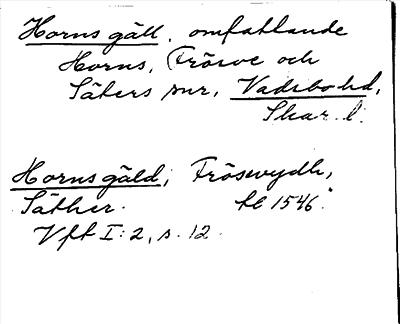 Horns gäll, omfattande
Horns, Fröjve och
Säters snr, Vadsbo hd,
Skar. l.
Horns gäld, Frösvydh,
Säther. tl 1546.
Vft I:2, s. 12.